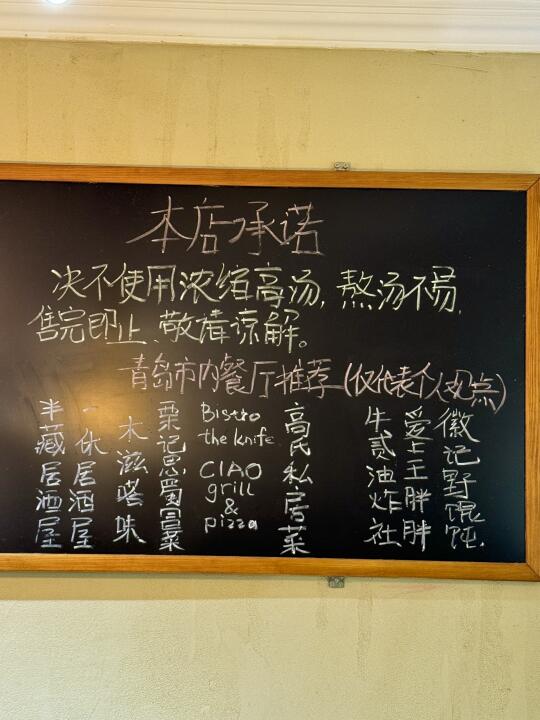 本店承诺
决不使用浓缩高汤,熬汤不易,
售完即止、敬请谅解。
青岛市内餐厅推荐(仅代表个人观点)
半藏居酒屋
一休居酒屋
木滋嗒味
栗记忠蜀冒菜
Bistro
the knife
CIAO
grill
&
pizza
高氏私房菜
牛贰油炸社
爱上王胖胖
徽记野馄饨